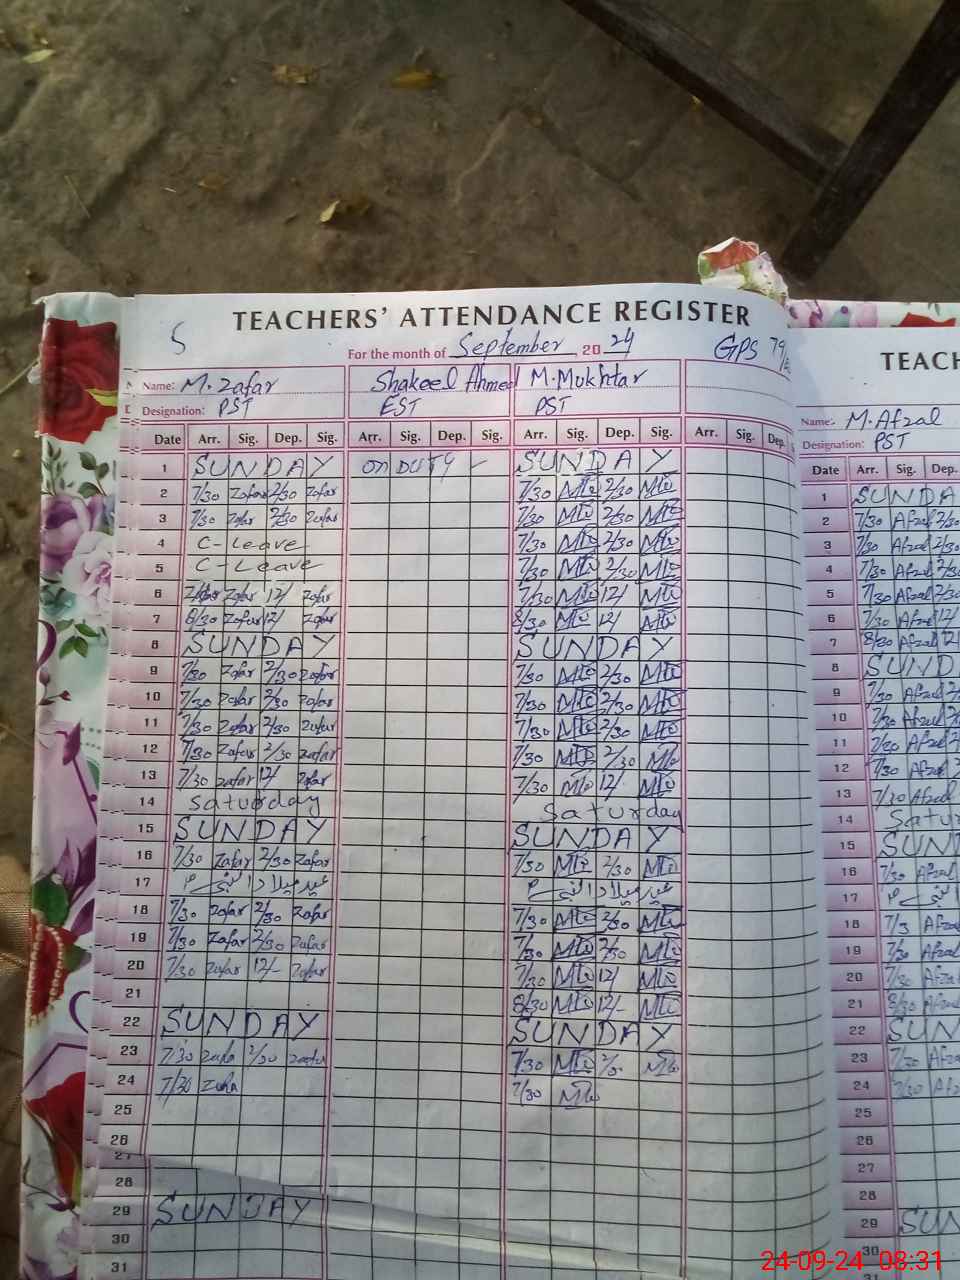 TEACHERS' ATTENDANCE REGISTER
5 For the month of September 2024 GPS 79/
Name: M. Zafar Shakeel Ahmed M. Mukhtar
Designation: PST EST PST
Date Arr. Sig. Dep. Sig. Arr. Sig. Dep. Sig. Arr. Sig. Dep. Sig. Arr. Sig. Dep.
1 SUNDAY ON DUTY SUNDAY
2 7/30 Zafar 2/30 Zafar 7/30 2/30
3 7/30 Zafar 2/30 Zafar 7/30 2/30
4 C-Leave 7/30 2/30
5 C-Leave 7/30 2/30
6 Zafar 12/ Zafar 7/30 12/
7 8/30 Zafar 12/ Zafar 8/30 12/
8 SUNDAY SUNDAY
9 7/30 Zafar 2/30 Zafar 7/30 2/30
10 7/30 Zafar 2/30 Zafar 7/30 2/30
11 7/30 Zafar 2/30 Zafar 7/30 2/30
12 7/30 Zafar 2/30 Zafar 7/30 2/30
13 7/30 Zafar 12/ Zafar 7/30 12/
14 Saturday Saturday
15 SUNDAY SUNDAY
16 7/30 Zafar 2/30 Zafar 7/30 2/30
17 عید میلادالنبیؐ عید میلادالنبیؐ
18 7/30 Zafar 2/30 Zafar 7/30 2/30
19 7/30 Zafar 2/30 Zafar 7/30 2/30
20 7/30 Zafar 12/- Zafar 7/30 12/
21 8/30 12/-
22 SUNDAY SUNDAY
23 7/30 2/30 7/30
24 7/30 7/30
25
26
27
28
29 SUNDAY
30
31
TEACH
Name: M. Afzal
Designation: PST
Date Arr. Sig. Dep.
1 SUNDA
2 7/30 Afzal 2/30
3 7/30 Afzal 2/30
4 7/30 Afzal 2/30
5 7/30 Afzal 2/30
6 7/30 Afzal 12/
7 8/30 Afzal 12/
8 SUND
9 7/30 Afzal 2/
10 7/30 Afzal 2/
11 7/30 Afzal 2
12 7/30 Afzal
13 7/30 Afzal
14 Satur
15 SUN
16 7/30 Afzal
17
18 7/3 Afzal
19 7/30 Afza
20 7/30 Afza
21 8/30 Afza
22 SUN
23 7/30 Afza
24 7/30 Afz
25
26
27
28
29 SUN
30
24-09-24 08:31